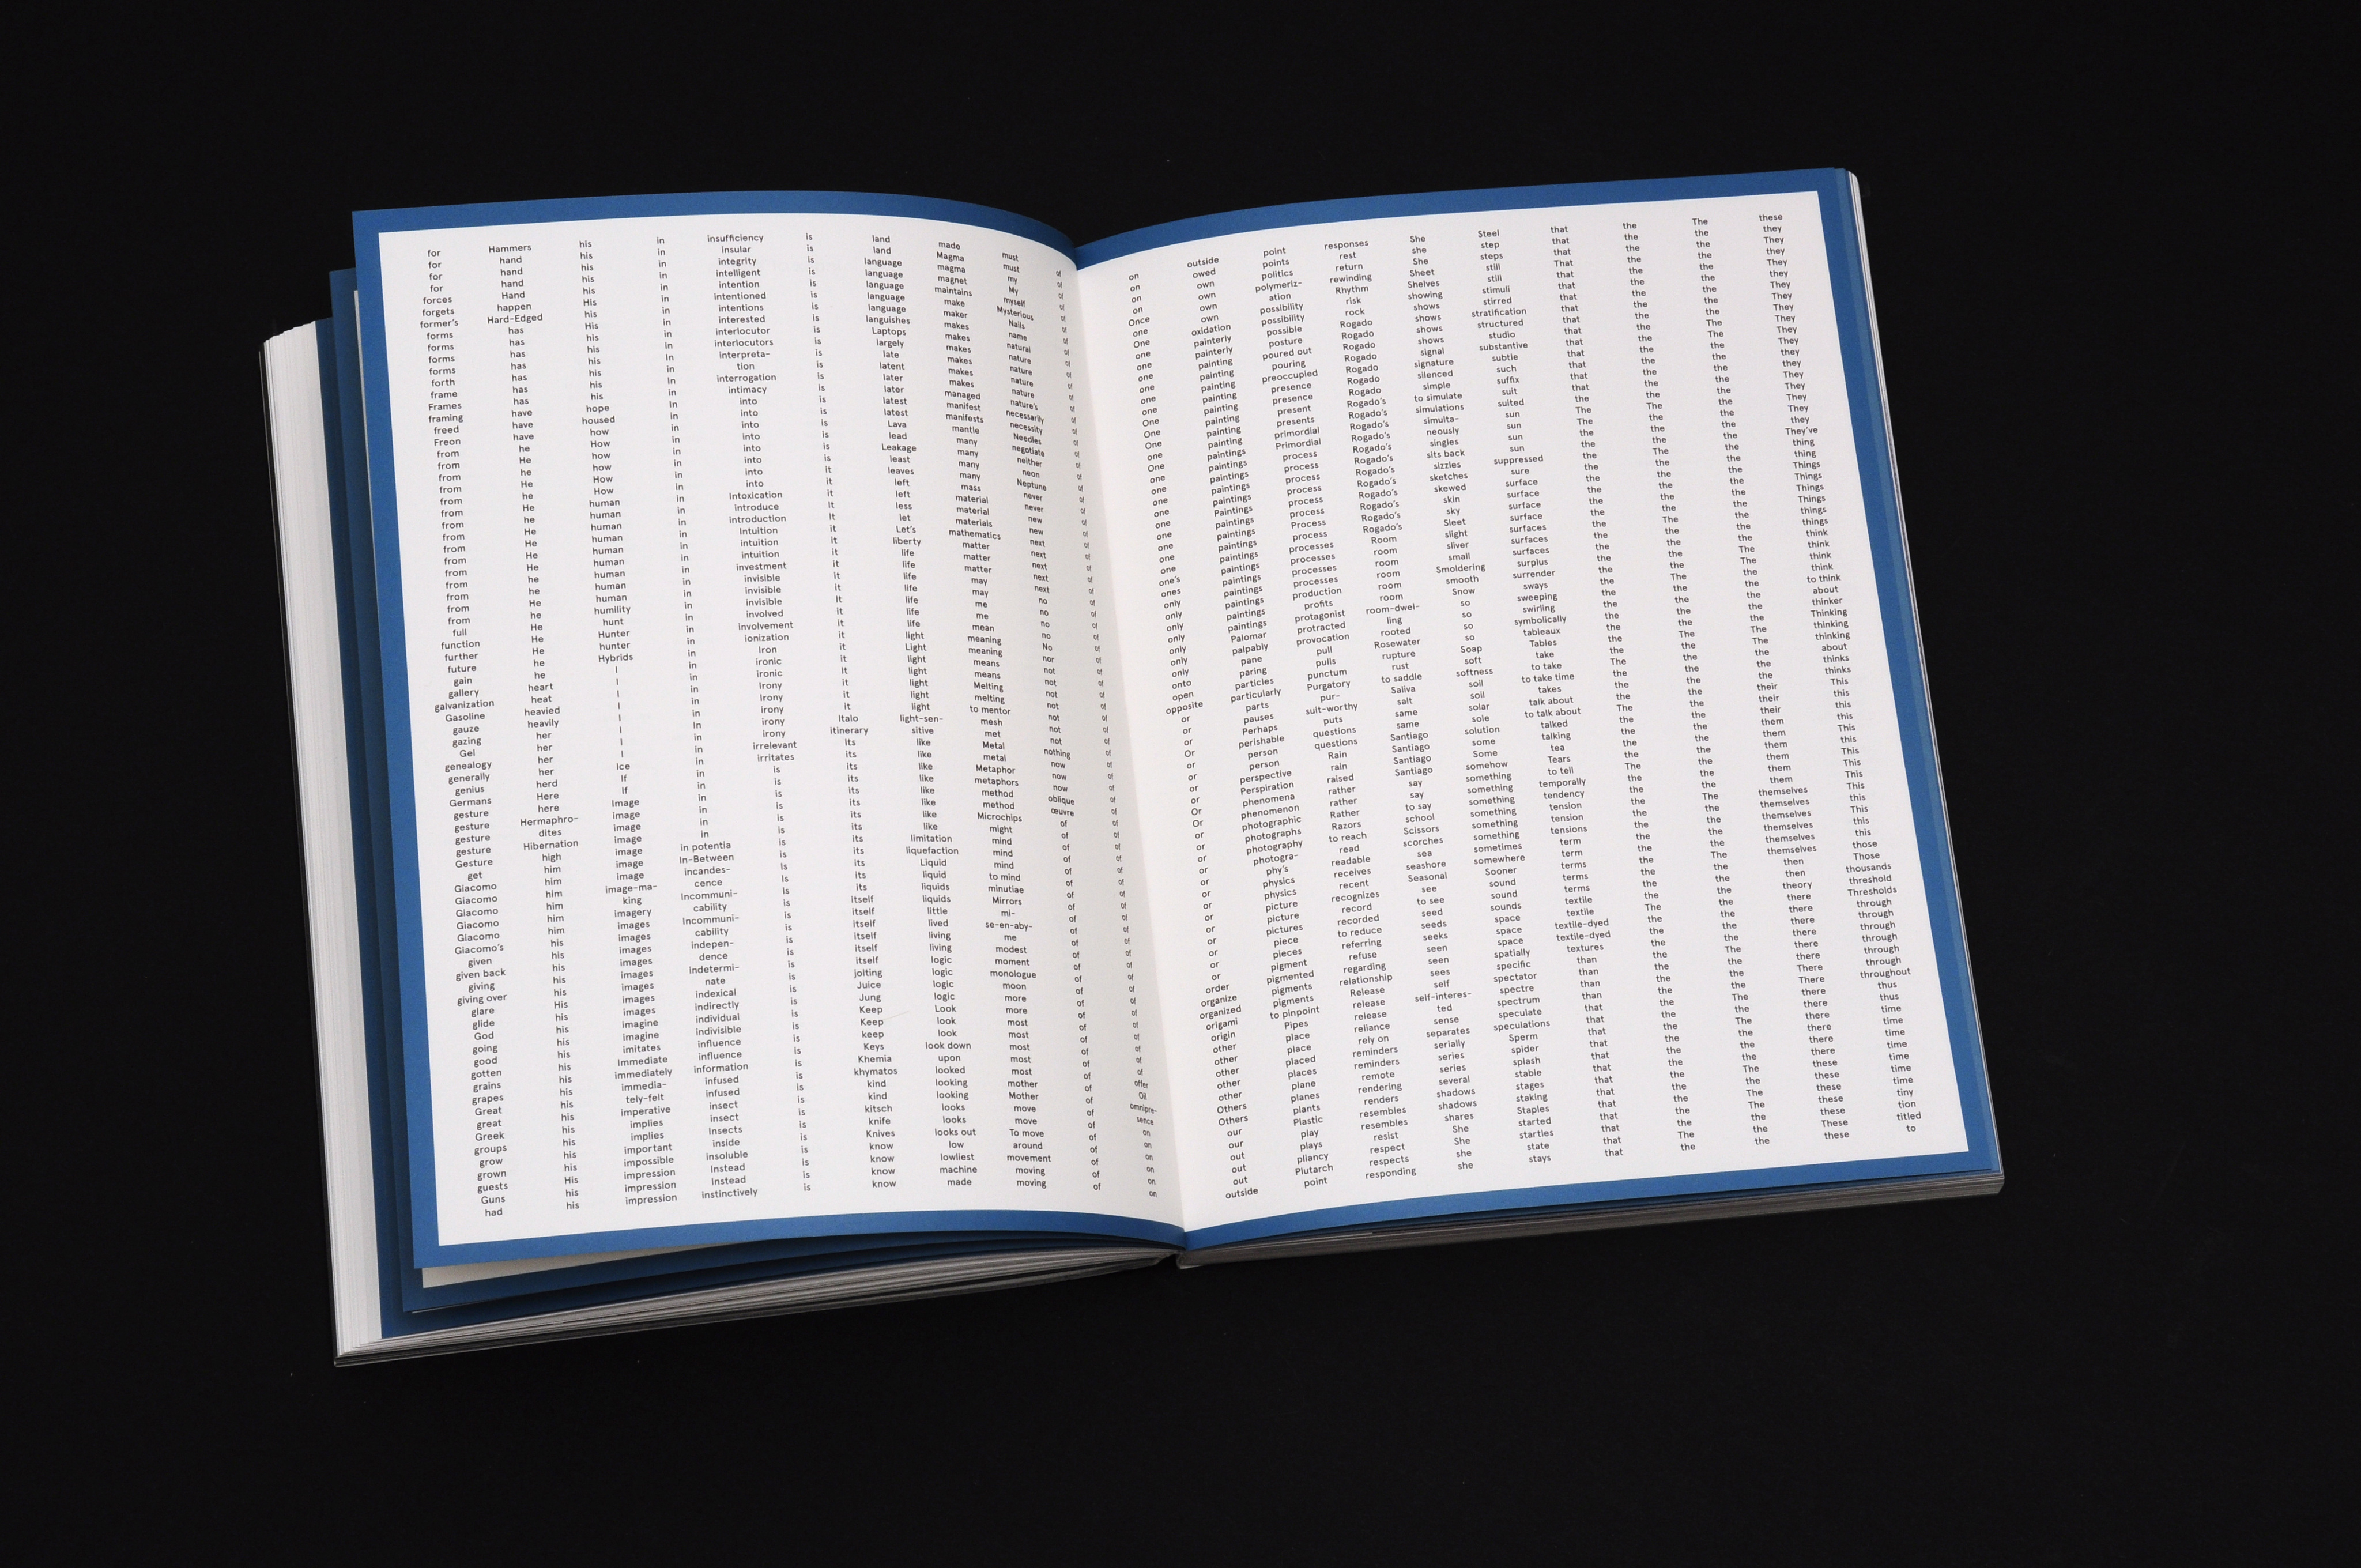 for
for
for
for
forces
forgets
former's
forms
forms
forms
forms
forth
frame
Frames
framing
freed
Freon
from
from
from
from
from
from
from
from
from
from
from
from
from
from
from
full
function
further
future
gain
gallery
galvanization
Gasoline
gauze
gazing
Gel
genealogy
generally
genius
Germans
gesture
gesture
gesture
gesture
Gesture
get
Giacomo
Giacomo
Giacomo
Giacomo
Giacomo
Giacomo's
given
given back
giving
giving over
glare
glide
God
going
good
gotten
grains
grapes
Great
great
Greek
groups
grow
grown
guests
Guns
had
Hammers
hand
hand
hand
Hand
happen
Hard-Edged
has
has
has
has
has
has
have
have
have
he
He
he
He
he
He
he
He
He
He
he
he
He
he
He
He
He
he
he
heart
heat
heavied
heavily
her
her
her
her
herd
Here
here
Hermaphro-
dites
Hibernation
high
him
him
him
him
him
him
his
his
his
his
his
His
his
his
his
his
his
his
his
his
his
his
his
His
his
his
his
his
his
his
His
his
His
his
his
his
his
hope
housed
how
How
how
how
How
How
human
human
human
human
human
human
human
human
humility
hunt
Hunter
hunter
Hybrids
I
I
I
I
I
I
I
I
Ice
If
If
Image
image
image
image
image
image
image-ma-
king
imagery
images
images
images
images
images
images
images
imagine
imagine
imitates
Immediate
immediately
immedia-
tely-felt
imperative
implies
implies
important
impossible
impression
impression
impression
in
in
in
in
in
in
in
in
in
In
in
In
In
in
in
in
in
in
in
in
in
in
in
in
in
in
in
in
in
in
in
in
in
in
in
in
in
in
in
in
in
In
in
in
in
in
in
in
in
in
in potentia
In-Between
incandes-
cence
Incommuni-
cability
Incommuni-
cability
indepen-
dence
indetermi-
nate
indexical
indirectly
individual
indivisible
influence
influence
information
infused
infused
insect
insect
Insects
inside
insoluble
Instead
Instead
instinctively
insufficiency
insular
integrity
intelligent
intention
intentioned
intentions
interested
interlocutor
interlocutors
interpreta-
tion
interrogation
intimacy
into
into
into
into
into
into
into
into
Intoxication
introduce
introduction
Intuition
intuition
intuition
investment
invisible
invisible
invisible
involved
involvement
ionization
Iron
ironic
ironic
Irony
Irony
irony
irony
irony
irrelevant
irritates
is
is
is
is
is
is
is
is
is
is
is
Is
is
is
is
is
is
is
is
is
is
is
is
is
is
is
is
is
is
is
is
is
is
is
is
is
is
is
is
is
is
is
is
is
is
is
is
is
is
is
is
is
is
is
is
it
it
it
It
It
it
it
it
it
it
It
it
it
it
it
it
it
it
it
it
it
Italo
itinerary
Its
its
its
its
its
its
its
its
its
its
its
its
itself
itself
itself
itself
itself
itself
jolting
Juice
Jung
Keep
Keep
keep
Keys
Khemia
khymatos
kind
kind
kitsch
knife
Knives
know
know
know
know
land
land
language
language
language
language
language
languishes
Laptops
largely
late
latent
later
later
latest
latest
Lava
lead
Leakage
least
leaves
left
left
less
let
Let's
liberty
life
life
life
life
life
life
light
Light
light
light
light
light
light
light-sen-
sitive
like
like
like
like
like
like
like
limitation
liquefaction
Liquid
liquid
liquids
liquids
little
lived
living
living
logic
logic
logic
Look
look
look
look down
upon
looked
looking
looking
looks
looks
looks out
low
lowliest
machine
made
made
Magma
magma
magnet
maintains
make
maker
makes
makes
makes
makes
makes
managed
manifest
manifests
mantle
many
many
many
many
mass
material
material
materials
mathematics
matter
matter
matter
may
may
me
me
mean
meaning
meaning
means
means
Melting
melting
to mentor
mesh
met
Metal
metal
Metaphor
metaphors
method
method
Microchips
might
mind
mind
mind
to mind
minutiae
Mirrors
mi-
se-en-aby-
me
modest
moment
monologue
moon
more
more
most
most
most
most
most
mother
Mother
move
move
To move
around
movement
moving
moving
must
must
my
My
myself
Mysterious
Nails
name
natural
nature
nature
nature
nature
nature's
necessarily
necessity
Needles
negotiate
neither
neon
Neptune
never
never
new
new
next
next
next
next
next
no
no
no
no
No
nor
not
not
not
not
not
not
not
nothing
now
now
now
oblique
œuvre
of
of
of
of
of
of
of
of
of
of
of
of
of
of
of
of
of
of
of
of
of
of
of
of
of
of
of
of
of
of
of
offer
Oil
omnipre-
sence
on
on
on
on
on
on
on
on
on
on
Once
one
One
one
one
one
one
one
One
One
one
One
one
one
one
one
one
one
one
one
one's
ones
only
only
only
only
only
only
onto
open
opposite
or
or
Or
or
or
or
Or
or
or
or
or
or
or
or
or
or
or
or
order
organize
organized
origami
origin
other
other
other
other
other
Others
Others
our
our
out
out
out
outside
outside
owed
own
own
own
own
oxidation
painterly
painterly
painting
painting
painting
painting
painting
painting
painting
paintings
paintings
paintings
paintings
Paintings
paintings
paintings
paintings
paintings
paintings
paintings
paintings
paintings
paintings
Palomar
palpably
pane
paring
particles
particularly
parts
pauses
Perhaps
perishable
person
person
perspective
Perspiration
phenomena
phenomenon
photographic
photographs
photography
photogra-
phy's
physics
physics
picture
picture
pictures
piece
pieces
pigment
pigmented
pigments
pigments
to pinpoint
Pipes
place
place
placed
places
plane
planes
plants
Plastic
play
plays
pliancy
Plutarch
point
point
points
politics
polymeriz-
ation
possibility
possibility
possible
posture
poured out
pouring
preoccupied
presence
presence
present
presents
primordial
Primordial
process
process
process
process
process
process
Process
processes
processes
processes
processes
production
profits
protagonist
protracted
provocation
pull
pulls
punctum
Purgatory
pur-
suit-worthy
puts
questions
questions
Rain
rain
raised
rather
rather
Rather
Razors
to reach
read
readable
receives
recent
recognizes
record
recorded
to reduce
referring
refuse
regarding
relationship
Release
release
release
reliance
rely on
reminders
reminders
remote
rendering
renders
resembles
resembles
resist
respect
respects
responding
responses
rest
return
rewinding
Rhythm
risk
rock
Rogado
Rogado
Rogado
Rogado
Rogado
Rogado
Rogado
Rogado's
Rogado's
Rogado's
Rogado's
Rogado's
Rogado's
Rogado's
Rogado's
Rogado's
Rogado's
Rogado's
Room
room
room
room
room
room
room-dwel-
ling
rooted
Rosewater
rupture
rust
to saddle
Saliva
salt
same
same
Santiago
Santiago
Santiago
Santiago
say
say
to say
school
Scissors
scorches
sea
seashore
Seasonal
see
to see
seed
seeds
seeks
seen
seen
sees
self
self-interes-
ted
sense
separates
serially
series
series
several
shadows
shadows
shares
She
She
she
she
She
she
She
Sheet
Shelves
showing
shows
shows
shows
signal
signature
silenced
simple
to simulate
simulations
simulta-
neously
singles
sits back
sizzles
sketches
skewed
skin
sky
Sleet
slight
sliver
small
Smoldering
smooth
Snow
so
so
so
so
Soap
soft
softness
soil
soil
solar
sole
solution
some
Some
somehow
something
something
something
something
something
something
sometimes
somewhere
Sooner
sound
sound
sounds
space
space
space
spatially
specific
spectator
spectre
spectrum
speculate
speculations
Sperm
spider
splash
stable
stages
staking
Staples
started
startles
state
stays
Steel
step
steps
still
still
stimuli
stirred
stratification
structured
studio
substantive
subtle
such
suffix
suit
suited
sun
sun
sun
sun
suppressed
sure
surface
surface
surface
surface
surfaces
surfaces
surfaces
surplus
surrender
sways
sweeping
swirling
symbolically
tableaux
Tables
take
to take
to take time
takes
talk about
to talk about
talked
talking
tea
Tears
to tell
temporally
tendency
tension
tension
tensions
term
term
terms
terms
terms
textile
textile
textile-dyed
textile-dyed
textures
than
than
than
than
that
that
that
that
that
that
that
that
that
that
that
that
That
that
that
that
that
that
that
that
that
that
that
The
The
the
the
the
the
the
the
the
the
the
the
the
the
the
the
the
the
the
the
the
The
The
the
The
the
the
the
these
they
They
they
They
they
They
They
They
They
They
they
they
They
They
They
they
They've
thing
thing
Things
Things
Things
Things
things
things
think
think
think
think
to think
about
thinker
Thinking
thinking
thinking
about
thinks
thinks
their
their
their
them
them
them
them
them
them
themselves
themselves
themselves
themselves
themselves
themselves
then
then
theory
there
there
there
there
there
There
There
there
there
there
there
there
these
these
these
these
these
These
these
This
this
this
this
This
this
This
This
This
This
this
This
this
this
those
Those
thousands
threshold
Thresholds
through
through
through
through
through
through
throughout
thus
thus
time
time
time
time
time
time
tiny
tion
titled
to